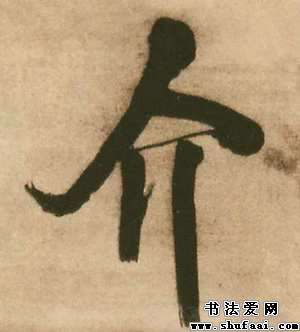 介
书法爱网
www.shufaai.com